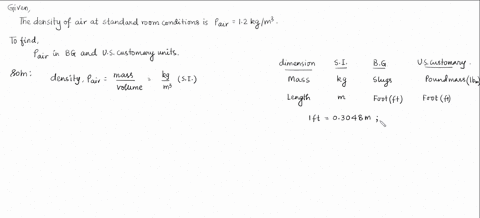 Given,
The density of air at standard room conditions is ρair = 1.2 kg/m³.
To find,
ρair in BG and U.S. customary units.
Soln:
density, ρair = mass/volume = kg/m³ (S.I.)
dimension S.I. B.G U.S. Customary
Mass kg Slugs Poundmass (lbm)
Length m Foot (ft) Foot (ft)
1ft = 0.3048m ;